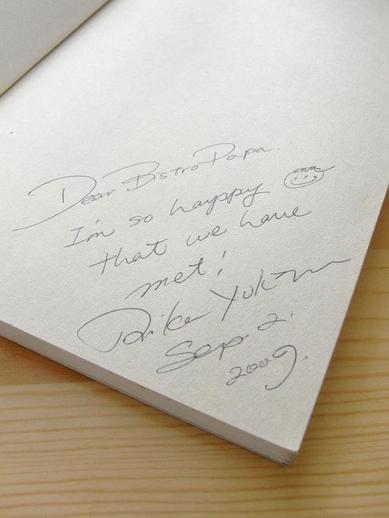 Dear Bistro Papa.
I'm so happy
that we have
met!
Rika
Sep. 2.
2009.